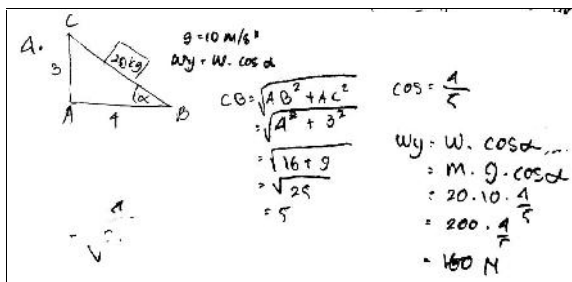 4.
C
20 kg
3
α
A
4
B
g = 10 m/s²
Wy = W. cos α
CB = √AB² + AC²
= √4² + 3²
= √16 + 9
= √25
= 5
cos = 4/5
Wy = W. cos α
= m. g. cos α
= 20. 10. 4/5
= 200. 4/5
= 160 N